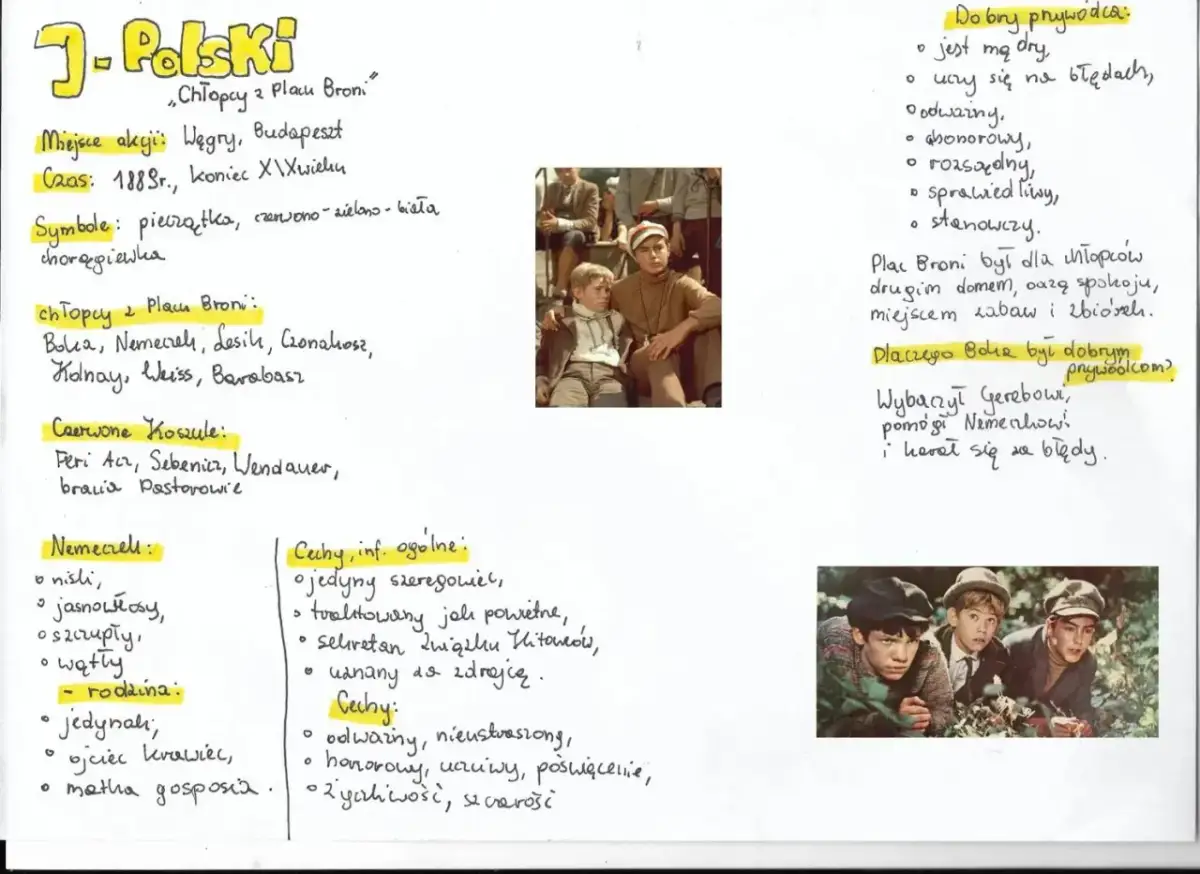 J-Polski
„Chłopcy z Placu Broni"
Miejsce akcji: Węgry, Budapeszt
Czas: 1889r., koniec XIXwieku
Symbole: pieczątka, czerwono-zielono-biała
chorągiewka
chłopcy z Placu Broni:
Boka, Nemeczek, Lesik, Czonakosz,
Kolnay, Weiss, Barabasz
Czerwone Koszule:
Feri Acz, Sebenicz, Wendauer,
bracia Pastorowie
Nemeczek:
niski,
jasnowłosy,
szczupły,
wątły
- rodzina:
jedynak,
ojciec krawiec,
matka gosposia.
Cechy, inf. ogólne:
jedyny szeregowiec,
traktowany jak powietrze,
sekretarz Związku Kitowców,
uznany za zdrajcę.
Cechy:
odważny, nieustraszony,
honorowy, uczciwy, poświęcenie,
życzliwość, szczerość
Dobry przywódca:
jest mądry,
uczy się na błędach,
odważny,
honorowy,
rozsądny,
sprawiedliwy,
stanowczy.
Plac Broni był dla chłopców
drugim domem, oazą spokoju,
miejscem zabaw i zbiórek.
Dlaczego Boka był dobrym
przywódcom?
Wybaczył Gerebowi,
pomógł Nemeczkowi
i karał się za błędy.